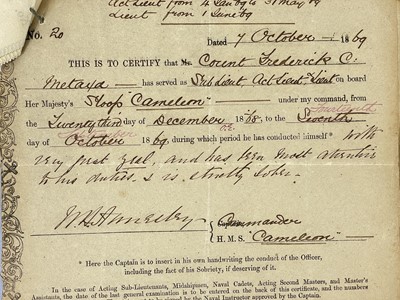 Act Lieut from 4 Jan 69 to 31 May 69
Lieut from 1 June 69
No. 20
Dated 7 October 1869
THIS IS TO CERTIFY that Mr. Count Frederick C.
Metaxa has served as Sub Lieut, Act Lieut & Lieut on board
Her Majesty's Sloop "Cameleon" under my command, from
the Twenty third day of December 1868, to the Seventh
day of October 1869 during which period he has conducted himself* with
very great zeal, and has been most attentive
to his duties. & is strictly sober.
W. H. Annesley
Captain Commander
H.M.S. "Cameleon"
* Here the Captain is to insert in his own handwriting the conduct of the Officer,
including the fact of his Sobriety, if deserving of it.
In the case of Acting Sub-Lieutenants, Midshipmen, Naval Cadets, Acting Second Masters, and Master's
Assistants, the date of the last general examination is to be entered on the back of this certificate, and the numbers
Naval Instructor approved by the Captain.